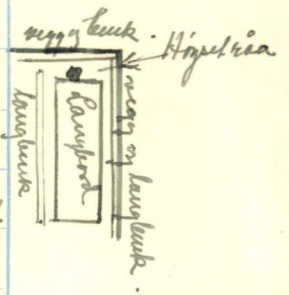 vegg og benk.
Høgsetråa
langbenk
Langbord
vegg og langbenk.